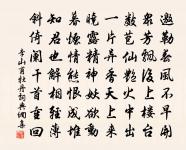 邀勒春風不早開
眾芳飄後上樓台
數苞仙艷火中出
一片異香天上來
曉露精神妖欲動
暮煙情態恨成堆
知君也解相輕薄
斜倚闌干首重回
李山甫牡丹